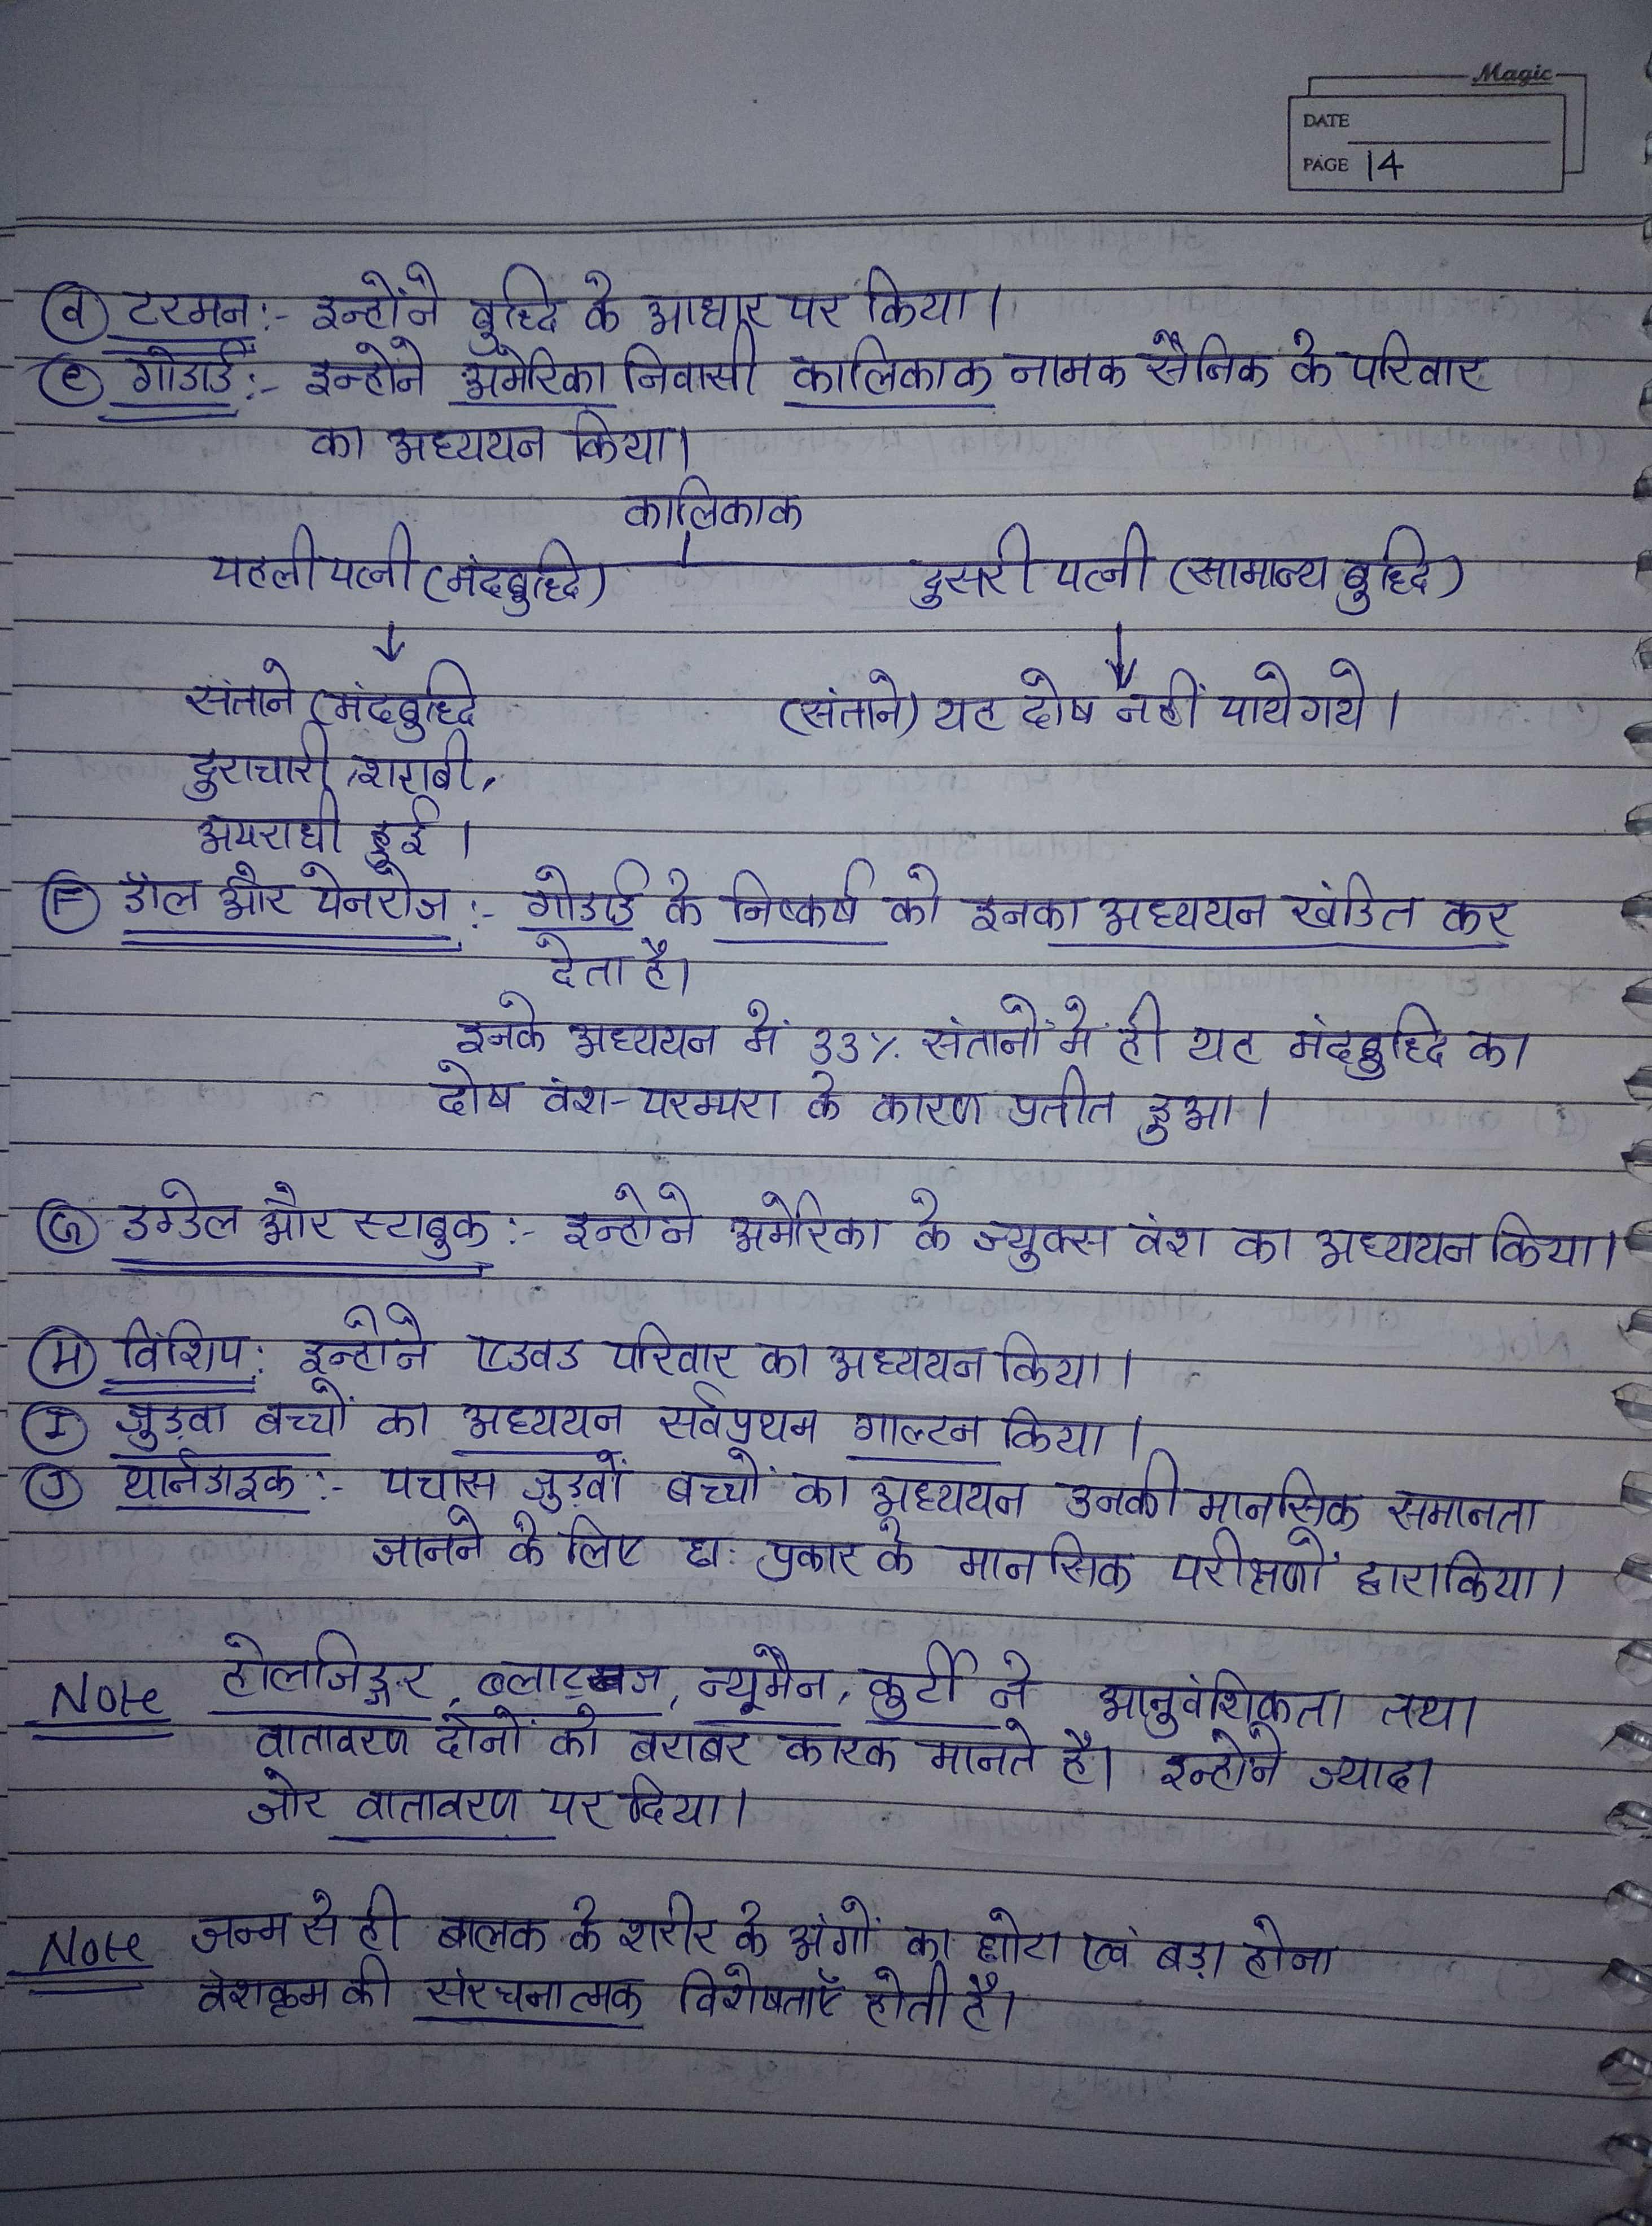 Magic
DATE
PAGE 14
(d) टरमन:- इन्होंने बुध्दि के आधार पर किया।
(e) गोडार्ड:- इन्होने अमेरिका निवासी कालिकाक नामक सैनिक के परिवार
का अध्ययन किया।
कालिकाक
पहली पत्नी (मंदबुध्दि) दुसरी पत्नी (सामान्य बुध्दि)
↓ ↓
संताने (मंदबुध्दि (संताने) यह दोष नहीं पाये गये।
दुराचारी, शराबी,
अपराधी हुई।
(F) डॉल और पेनरोज:- गोडार्ड के निष्कर्ष को इनका अध्ययन खंडित कर
देता है।
इनके अध्ययन में 33% संतानों में ही यह मंदबुध्दि का
दोष वंश-परम्परा के कारण प्रतीत हुआ।
(G) डग्डेल और स्टाबुक:- इन्होने अमेरिका के ज्युक्स वंश का अध्ययन किया।
(H) विंशिप: इन्होने एडवड परिवार का अध्ययन किया।
(I) जुड़वा बच्चों का अध्ययन सर्वप्रथम गाल्टन किया।
(J) थार्नडाइक:- पचास जुड़वाँ बच्चों का अध्ययन उनकी मानसिक समानता
जानने के लिए छः प्रकार के मानसिक परीक्षणों द्वारा किया।
Note होलजिङ्गर, ब्लाट्ज, न्यूमैन, कुर्टी ने आनुवंशिकता तथा
वातावरण दोनों को बराबर कारक मानते है। इन्होने ज्यादा
जोर वातावरण पर दिया।
Note जन्म से ही बालक के शरीर के अंगों का छोटा एवं बड़ा होना
वंशक्रम की संरचनात्मक विशेषताएँ होती है।